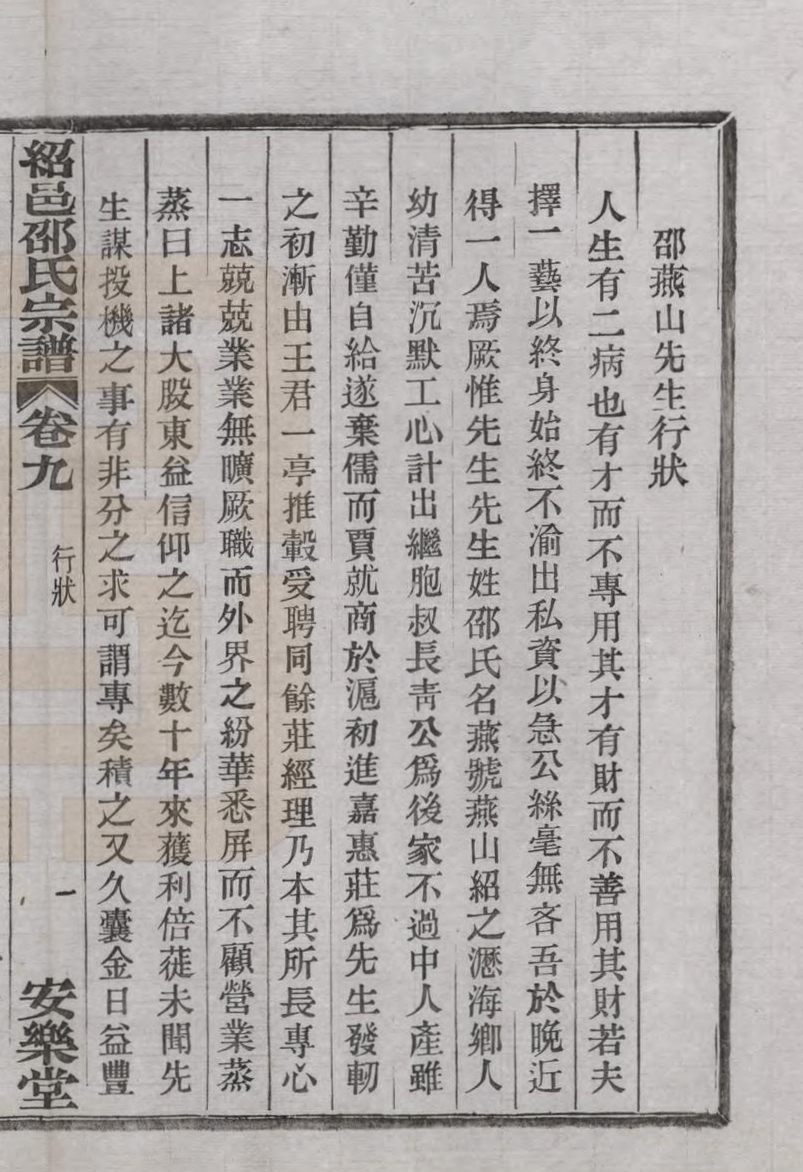 邵燕山先生行狀
人生有二病也有才而不專用其才有財而不善用其財若夫
擇一藝以終身始終不渝出私資以急公絲毫無吝吾於晚近
得一人焉厥惟先生先生姓邵氏名燕號燕山紹之瀝海鄉人
幼清苦沉默工心計出繼胞叔長靑公爲後家不過中人產雖
辛勤僅自給遂棄儒而賈就商於滬初進嘉惠莊爲先生發軔
之初漸由王君一亭推轂受聘同餘莊經理乃本其所長專心
一志兢兢業業無曠厥職而外界之紛華悉屏而不顧營業蒸
蒸日上諸大股東益信仰之迄今數十年來獲利倍蓰未聞先
生謀投機之事有非分之求可謂專矣積之又久囊金日益豐
紹邑邵氏宗譜 卷九 行狀 一 安樂堂